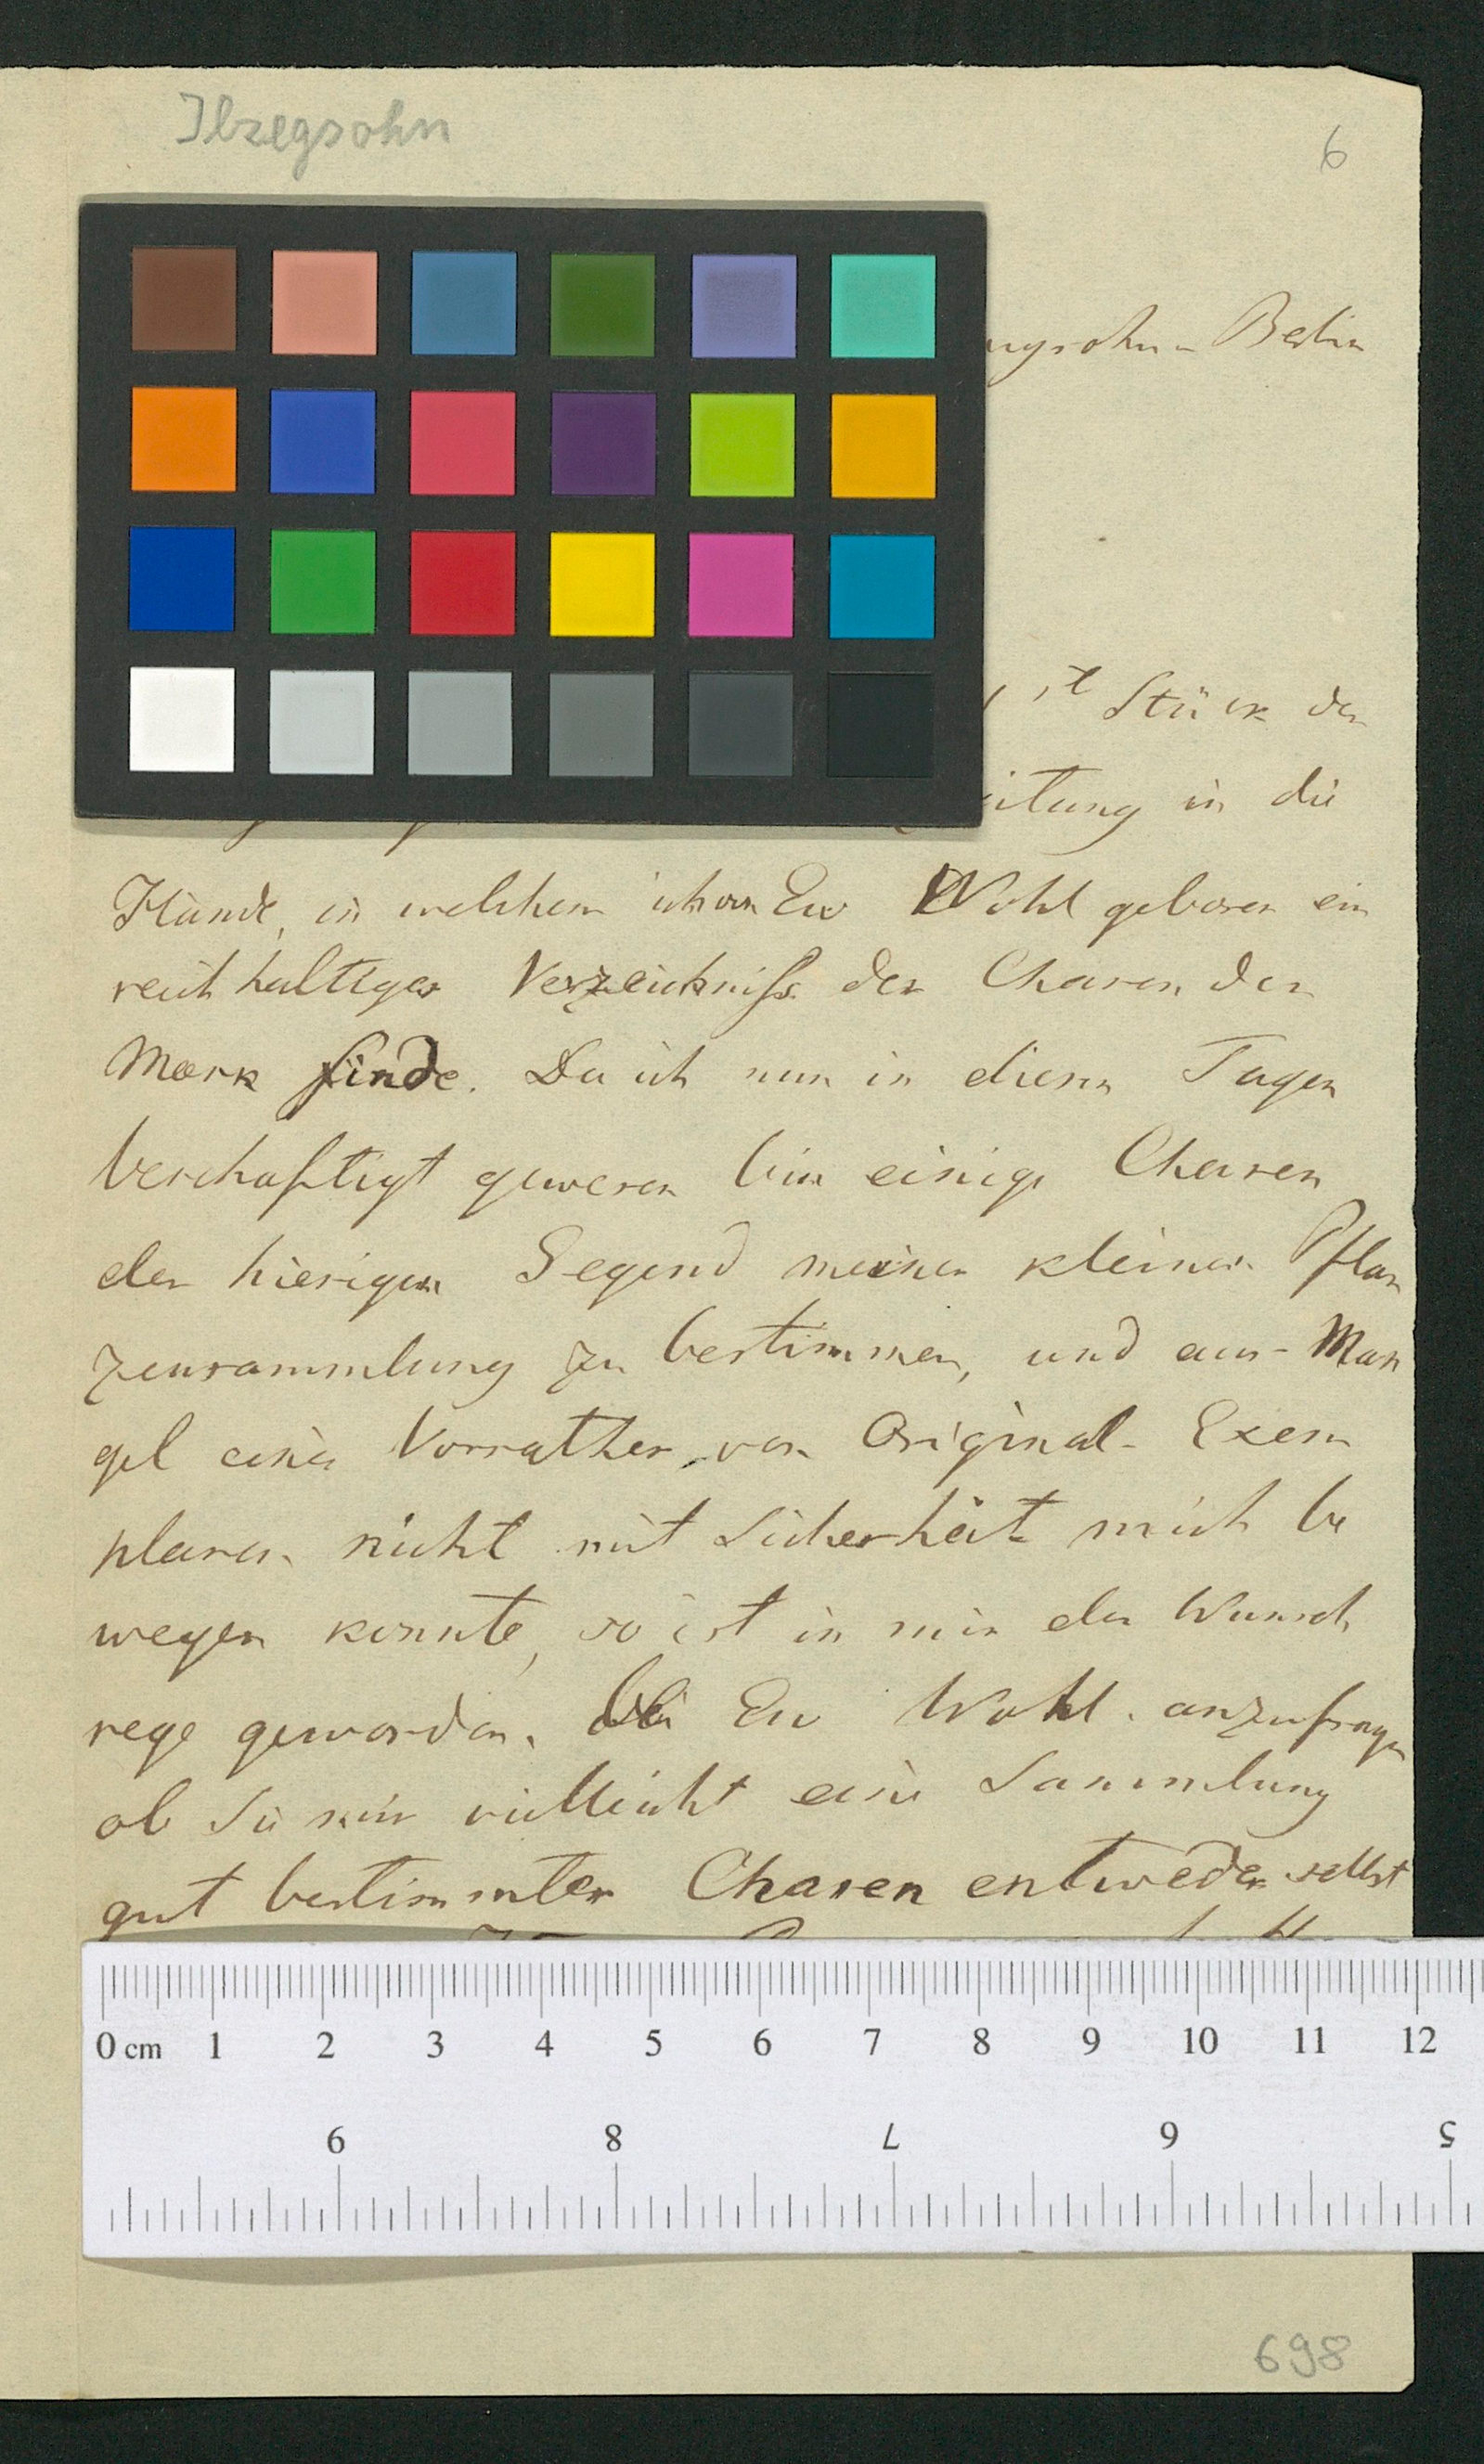 Ilzegsohn
6
ngsohn - Berlin
st Stück der
eitung in die
Hände, in welchem ich von Ew Wohlgeboren ein
reichhaltiges Verzeichniß der Charen der
Mark finde. Da ich nun in diesen Tagen
beschaftigt gewesen bin einige Charen
der hiesigen Gegend meiner kleinen Pflan
zensammlung zu bestimmen, und aus Man
gel eines Vorrathes von Original-Exem
plaren nicht mit Sicherheit mich be
wegen konnte, so ist in mir der Wunsch
rege geworden, bei Ew Wohl. anzufragen
ob Sie mir vielleicht eine Sammlung
gut bestimmter Charen entweder selbst
0 cm 1 2 3 4 5 6 7 8 9 10 11 12
9 8 7 6 5
698